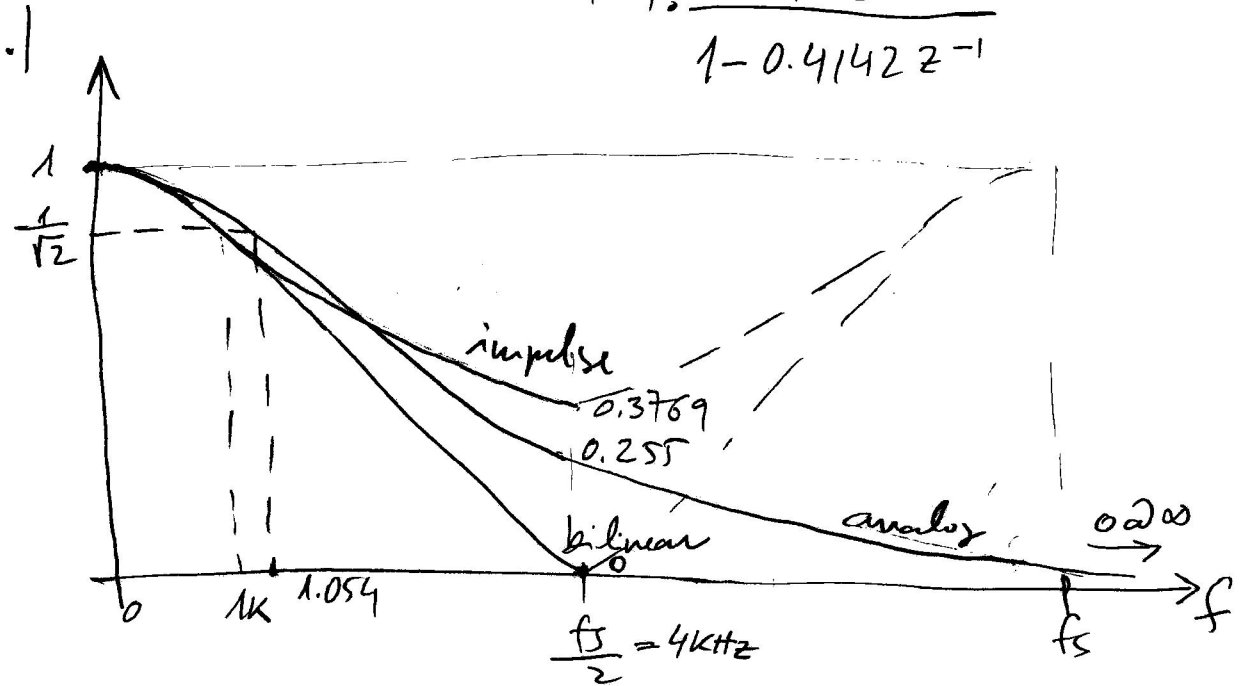 .|
1 - 0.4142 z⁻¹
1
1/√2
impulse
0.3769
0.255
bilinear
0
analog
0 @ ∞
0
1K
1.054
fs/2 = 4KHz
fs
f